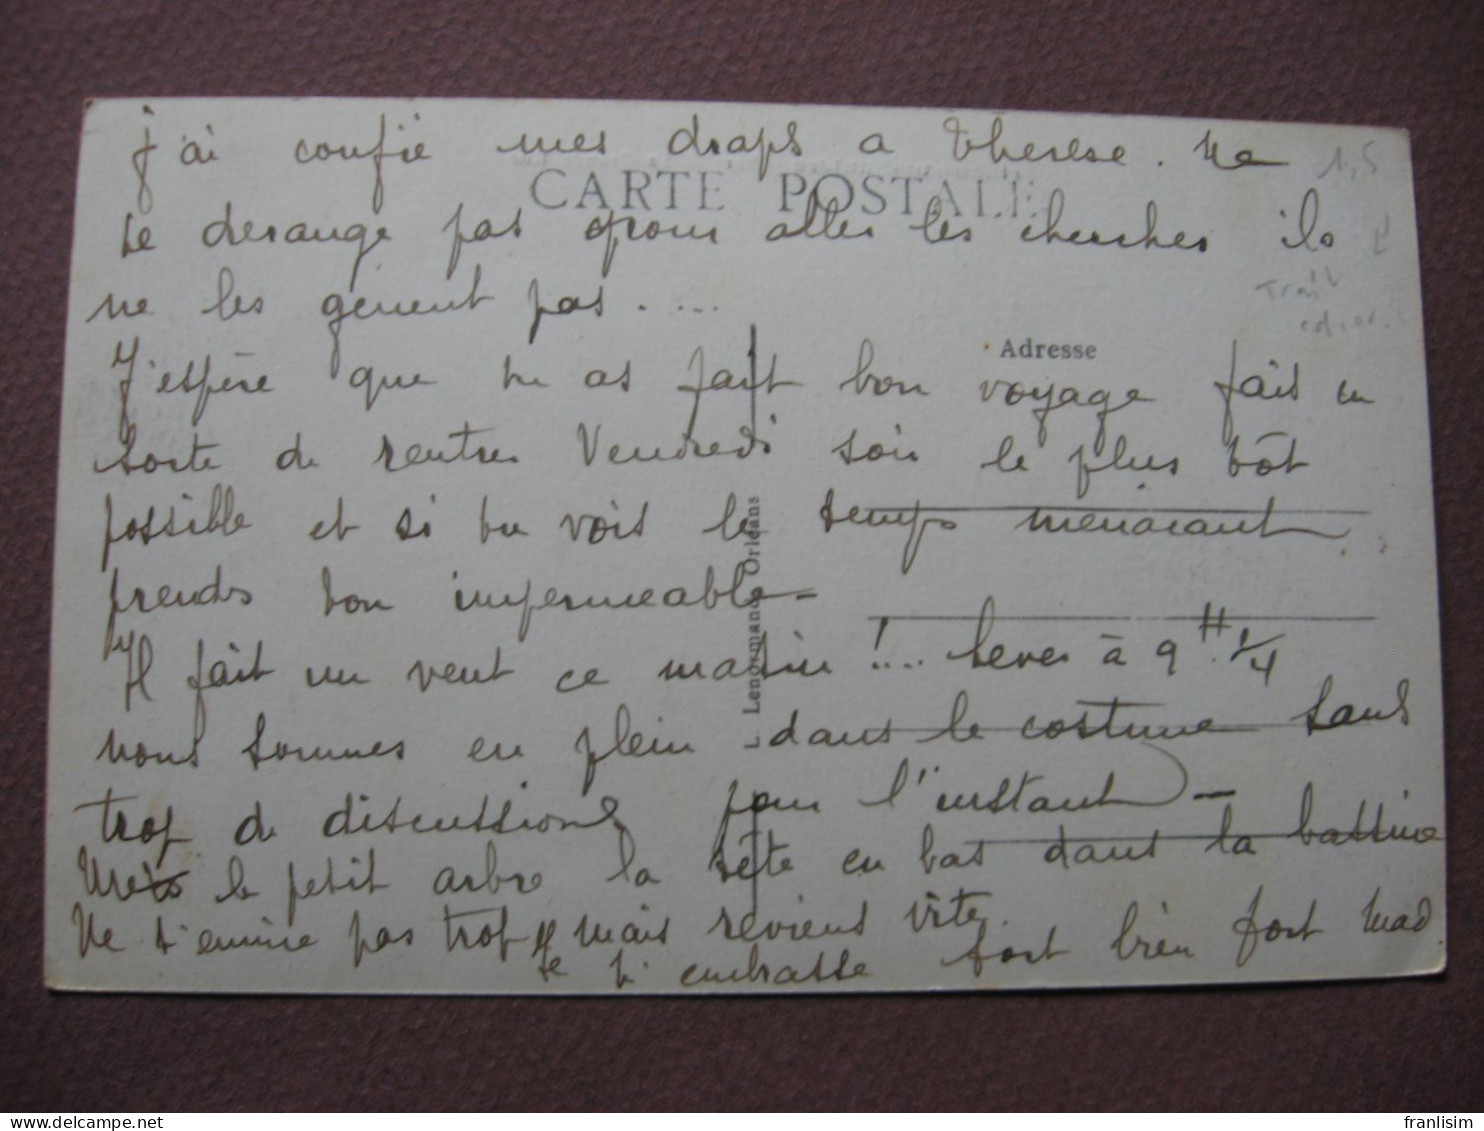 J'ai confié mes draps a Therese. Ne 1,5
CARTE POSTALE
te derange pas pour aller les chercher ils
ne les genent pas. ....
Adresse
J'espère que tu as fait bon voyage fais en
sorte de rentrer Vendredi soir le plus tôt
possible et si tu vois le temps menacant
prends ton impermeable -
Il fait un vent ce matin !... Lever à 9 H 1/4
nous sommes en plein dans le costume sans
trop de discussions pour l'instant -
le petit arbre la tête en bas dans la bassine
Ne t'ennuie pas trop mais reviens vite.
Je t'embrasse fort bien fort Mad
L. Lenormand, Orléans
franlisim